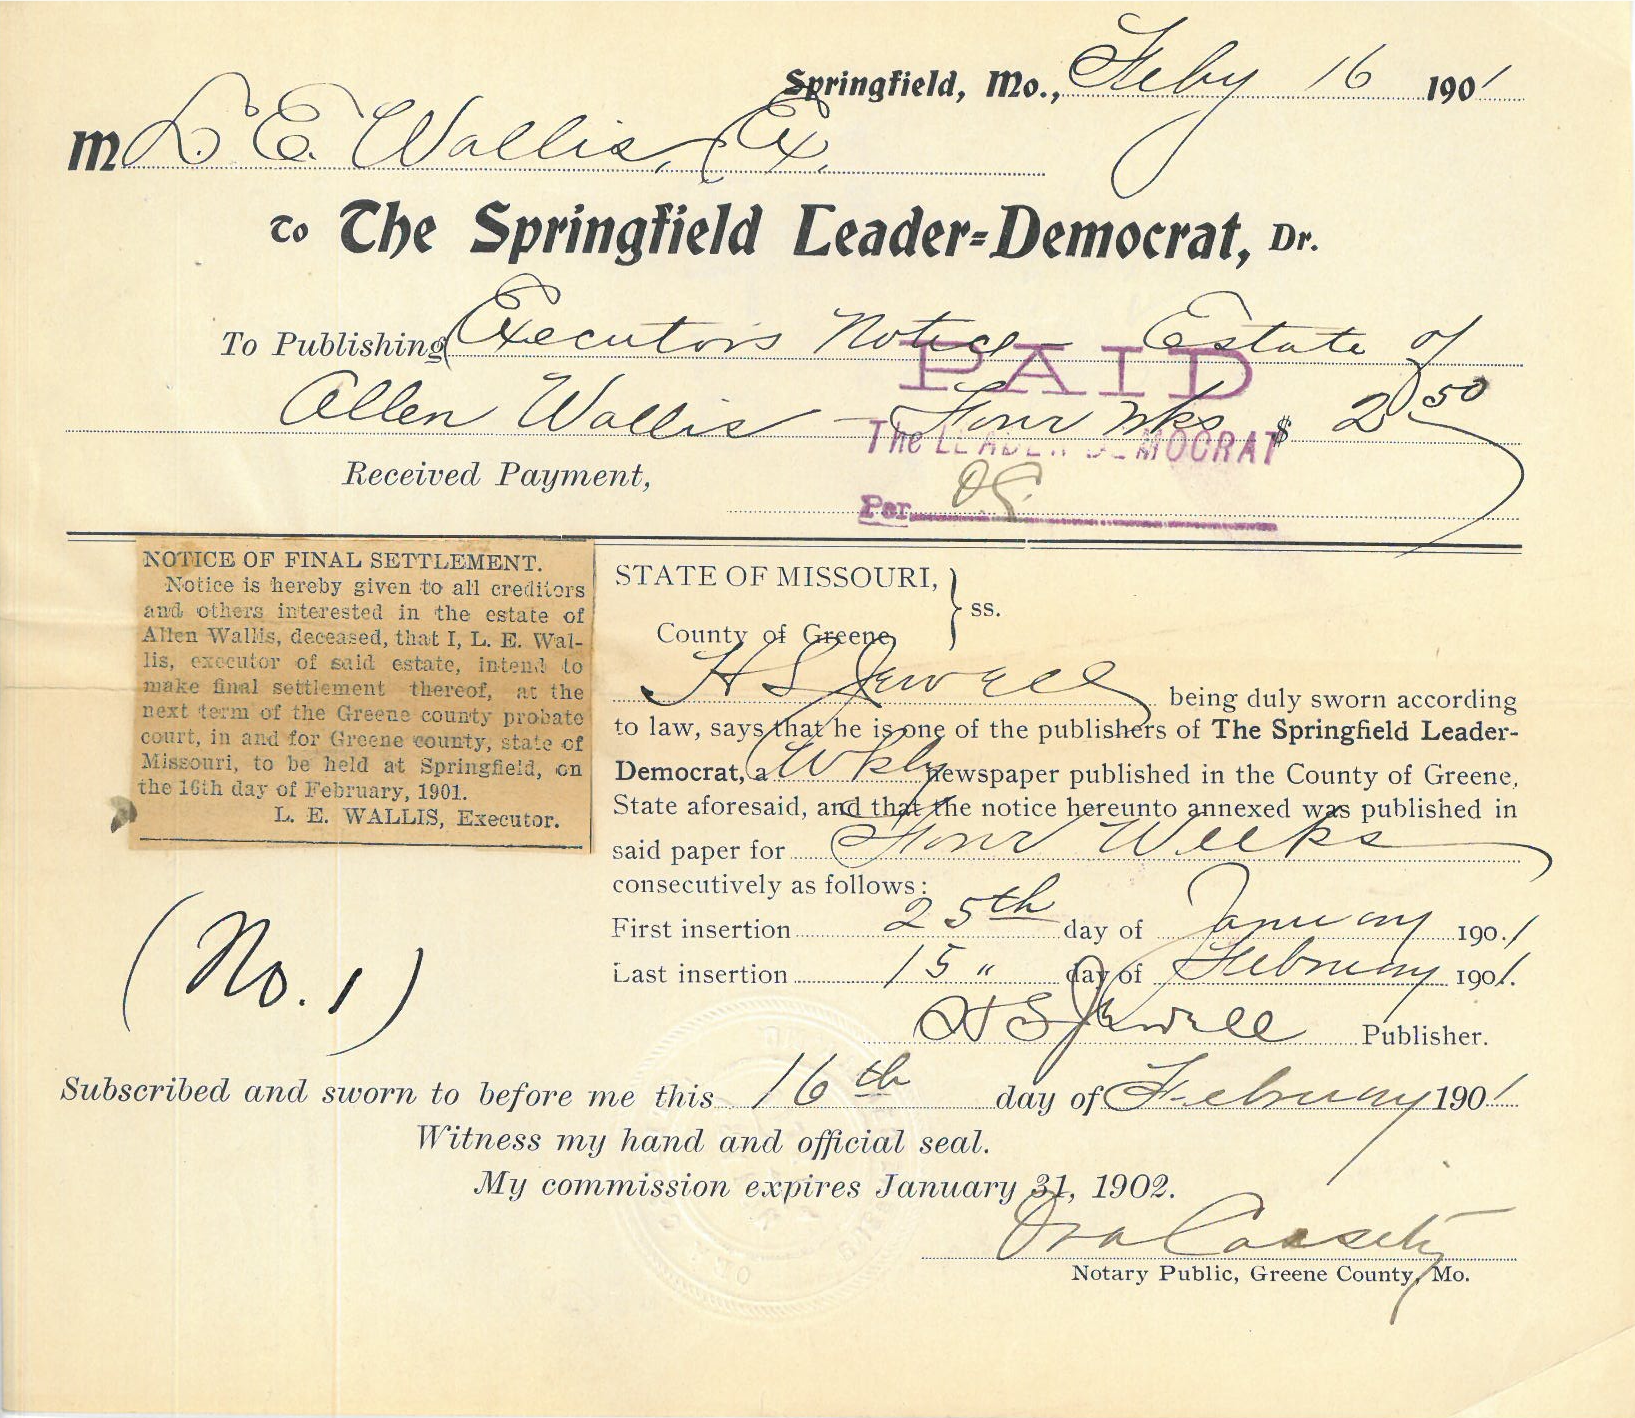 Springfield, Mo., Feby 16 1901
M L. E. Wallis, Ex.
To The Springfield Leader-Democrat, Dr.
To Publishing Executors Notice - Estate of
Allen Wallis - Four wks $ 2 50
PAID
The LEADER DEMOCRAT
Received Payment,
Per
NOTICE OF FINAL SETTLEMENT.
Notice is hereby given to all creditors
and others interested in the estate of
Allen Wallis, deceased, that I, L. E. Wal-
lis, executor of said estate, intend to
make final settlement thereof, at the
next term of the Greene county probate
court, in and for Greene county, state of
Missouri, to be held at Springfield, on
the 16th day of February, 1901.
L. E. WALLIS, Executor.
(No. 1)
STATE OF MISSOURI, } ss.
County of Greene,
H S Jewell being duly sworn according
to law, says that he is one of the publishers of The Springfield Leader-
Democrat, a Wkly newspaper published in the County of Greene,
State aforesaid, and that the notice hereunto annexed was published in
said paper for Four Weeks
consecutively as follows:
First insertion 25th day of January 1901
Last insertion 15 " day of February 1901.
H S Jewell Publisher.
Subscribed and sworn to before me this 16th day of February 1901
Witness my hand and official seal.
My commission expires January 31, 1902.
Ora Cassety
Notary Public, Greene County, Mo.